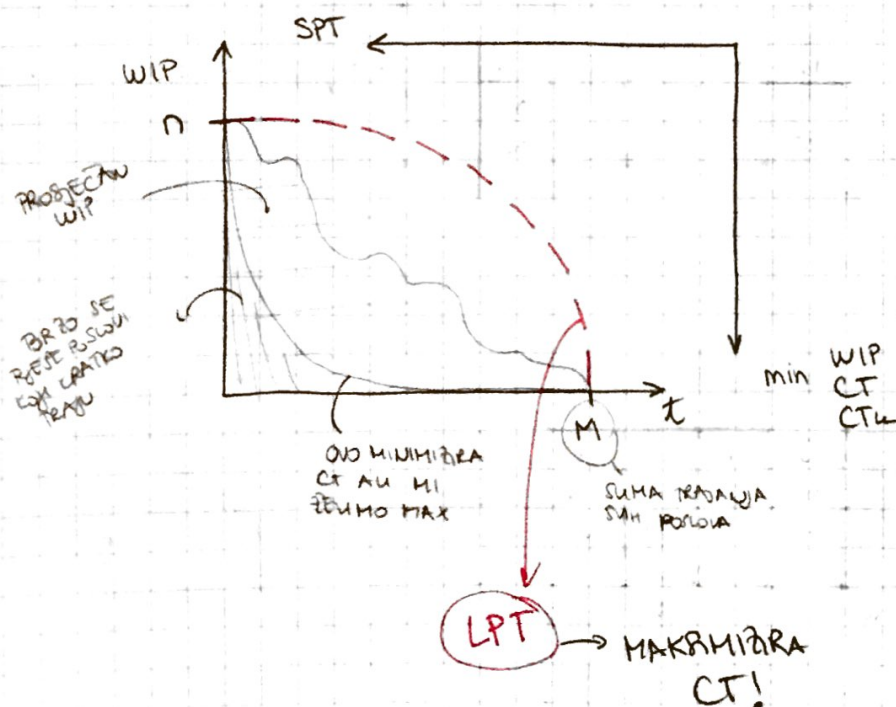 SPT
WIP
n
PROSJEČAN
WIP
BRZO SE
RJEŠE POSLOVI
KOJI KRATKO
TRAJU
t
M
min WIP
CT
OVO MINIMIZIRA
CT ALI MI
ŽELIMO MAX
SUMA TRAJANJA
SVIH POSLOVA
LPT
MAKSIMIZIRA
CT!